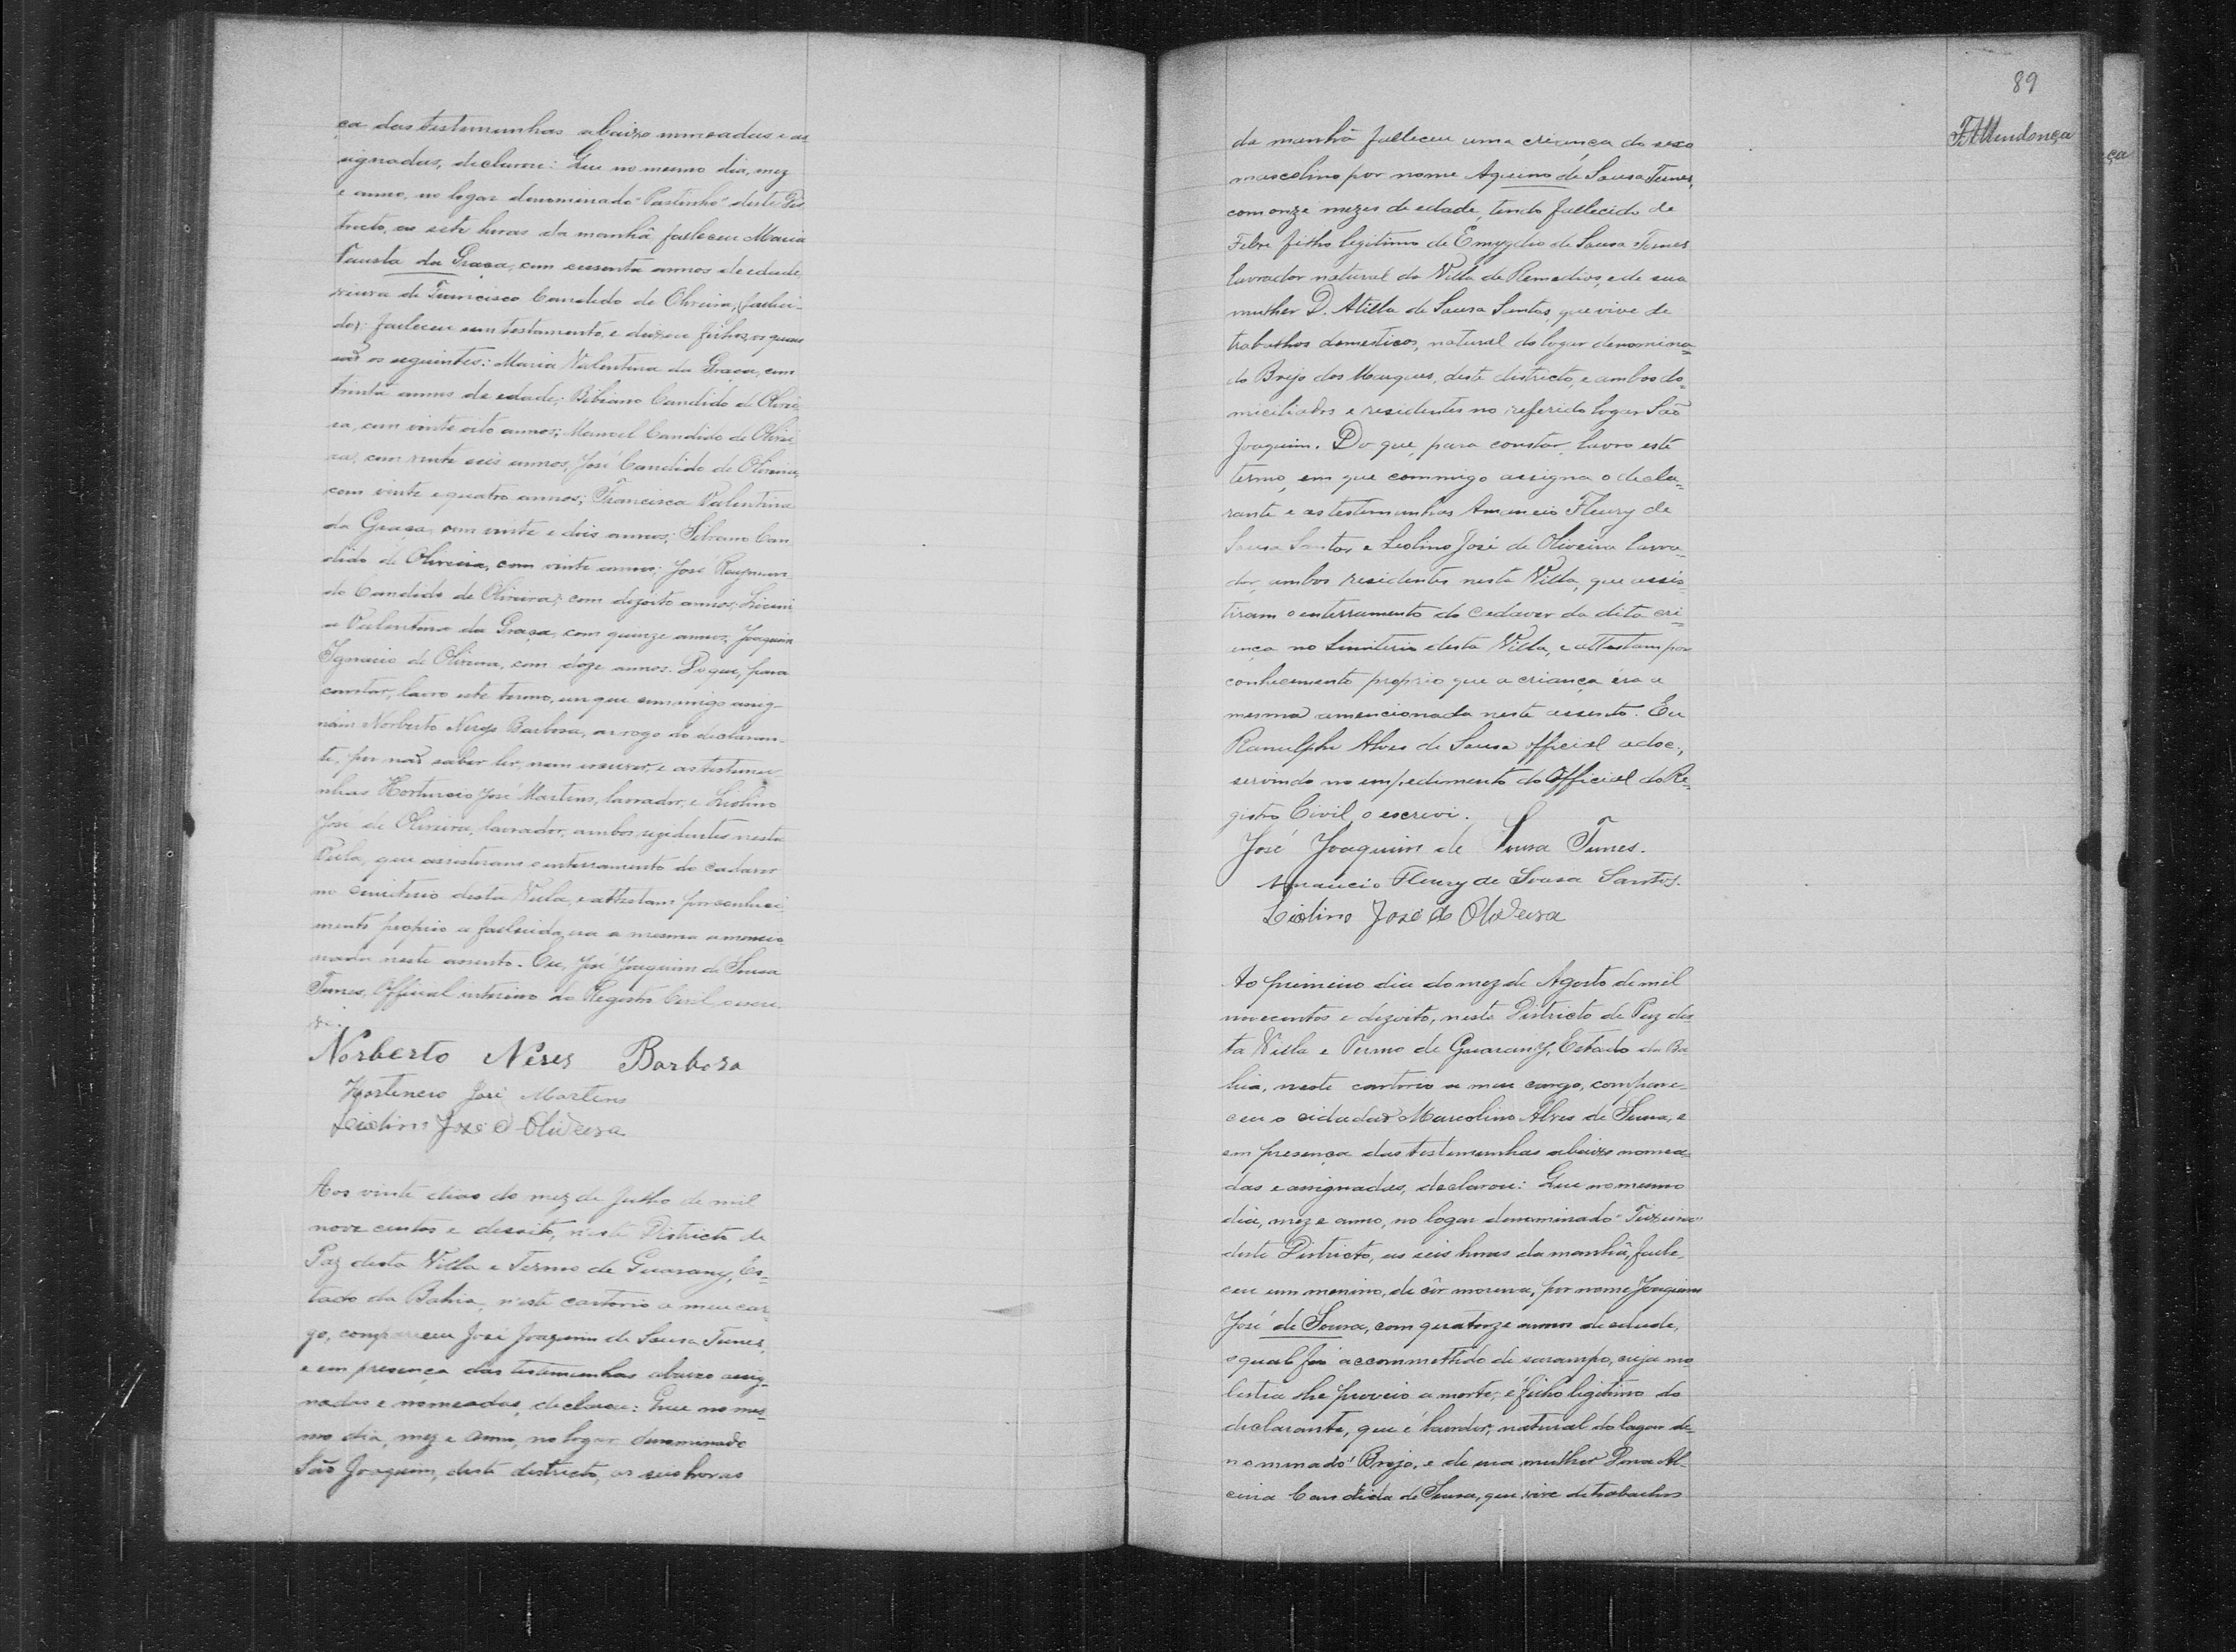 ça das testemunhas abaixo nomeadas e as
signadas, declarou: Que no mesmo dia, mez
e anno, no logar denominado "Pastinho" deste Dis
tricto, as sete horas da manhã falleceu Maria
Fausta da Graça, com sessenta annos de edade
viuva de Francisco Candido de Oliveira, (falleci-
do); falleceu sem testamento, e deixou filhos, os quaes
são os seguintes: Maria Valentina da Graça, com
trinta annos de edade; Bibiano Candido de Olivei
ra, com vinte oito annos; Manoel Candido de Olivei
ra, com vinte seis annos; José Candido de Oliveira,
com vinte e quatro annos; Francisca Valentina
da Graça, com vinte e dois annos; Silvano Can
dido de Oliveira, com vinte annos; José Raymun
do Candido de Oliveira, com dezoito annos;
a Valentina da Graça, com quinze annos; Joaquim
Ignacio de Oliveira, com doze annos. Do que, para
constar, lavro este termo, em que commigo assig-
nam Norberto Neves Barbosa, a rogo do declaran-
te, por não saber ler, nem escrever, e as testemu-
nhas Hortencio José Martins, lavrador, e Liolino
José de Oliveira, lavrador, ambos residentes nesta
Villa, que assistiram o enterramento do cadaver
no cemiterio desta Villa, e attestam por conheci-
mento proprio a fallecida era a mesma amencio
nada neste assento. Eu, José Joaquim de Sousa
Tunes, Official interino do Registro Civil, o escre
vi.
Norberto Neves Barbosa
Hortencio José Martins
Liolino José d Oliveira
Aos vinte dias do mez de Julho de mil
nove centos e desoito, n'este Districto de
Paz desta Villa e Termo de Guarany, Es-
tado da Bahia, n'este cartorio a meu car-
go, compareceu José Joaquim de Sousa Tunes,
e em presença das testemunhas abaixo assig-
nadas e nomeadas, declarou: Que no mes-
mo dia, mez e anno, no logar denominado
São Joaquim, deste districto, as seis horas
89
FAMendonça
ça
da manhã falleceu uma criança do sexo
mascolino por nome Aquino de Sousa Tunes,
com onze mezes de edade, tendo fallecido de
Febre filho legitimo de Emygdio de Sousa Tunes
lavrador natural da Villa de Remedios, e de sua
mulher D. Atilla de Sousa Santos, que vive de
trabalhos domesticos, natural do logar denomina-
do Brejo dos Marques, deste districto, e ambos do-
miciliados e residentes no referido logar São
Joaquim. Do que, para constar, lavro este
termo, em que commigo assigna o decla-
rante e as testemunhas Amancio Fleury de
Sousa Santos e Leolino José de Oliveira lavra-
dor, ambos residentes nesta Villa, que assis
tiram o enterramento do cadaver da dita cri-
ança no Cemiterio desta Villa, e attestam por
conhecimento proprio que a criança éra a
mesma amencionada neste assento. Eu
Ranulpho Alves de Sousa official adoc.,
servindo no empedimento do Official do Re-
gistro Civil, o escrevi.
José Joaquim de Sousa Tunes.
Amancio Fleury de Sousa Santos.
Liolino José d Oliveira
Ao primeiro dia do mez de Agosto de mil
novecentos e dezoito, neste Districto de Paz des
ta Villa e Termo de Guarany, Estado da Ba
hia, neste cartorio a meu cargo, compare-
ceu o cidadão Marcolino Alves de Sousa, e
em presença das testemunhas abaixo nomea-
das e assignadas, declarou: Que no mesmo
dia, mez e anno, no logar denominado "Teixeira"
deste Districto, as seis horas da manhã, falle-
ceu um menino, de côr morena, por nome Joaquim
José de Sousa, com quatorze annos de edade,
o qual foi accommettido de sarampo, cuja mo
lestia lhe proveio a morte; é filho legitimo do
declarante, que é lavrador, natural do lagar de-
nominado "Brejo, e de sua mulher Dona Al-
cina Candida de Sousa, que vive de trabalhos